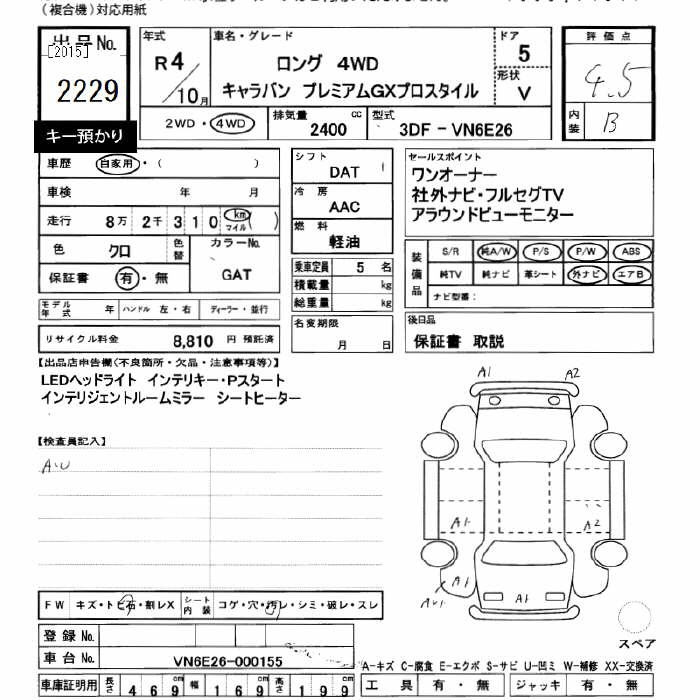 (複合機)対応用紙
出品No.
[2015]
2229
キー預かり
年式
R4/10月
車名・グレード
ロング 4WD
キャラバン プレミアムGXプロスタイル
ドア
5
形状
V
評価点
4.5
内装
B
2WD・4WD
排気量
2400 cc
型式
3DF-VN6E26
車歴 自家用・( )
車検 年 月
走行 8万2千310 km マイル ( )
色 クロ 色替
カラーNo.
GAT
保証書 有・無
シフト
DAT
冷房
AAC
燃料
軽油
乗車定員 5 名
積載量 kg
総重量 kg
セールスポイント
ワンオーナー
社外ナビ・フルセグTV
アラウンドビューモニター
装備品
S/R 純A/W P/S P/W ABS
純TV 純ナビ 革シート 外ナビ エアB
ナビ型番:
モデル年式 年 ハンドル 左・右 ディーラー・並行
リサイクル料金 8,810 円 預託済
名変期限
月 日
後日品
保証書 取説
【出品店申告欄(不良箇所・欠品・注意事項等)】
LEDヘッドライト インテリキー・Pスタート
インテリジェントルームミラー シートヒーター
【検査員記入】
A1 A2
A1 A2
A1 A1
FW キズ・トビ石・割レX
シート内装 コゲ・穴・汚レ・シミ・破レ・スレ
スペア
登録No.
車台No. VN6E26-000155
A-キズ C-腐食 E-エクボ S-サビ U-凹ミ W-補修 XX-交換済
車庫証明用 長さ 469cm 幅 169cm 高さ 199cm
工具 有・無 ジャッキ 有・無